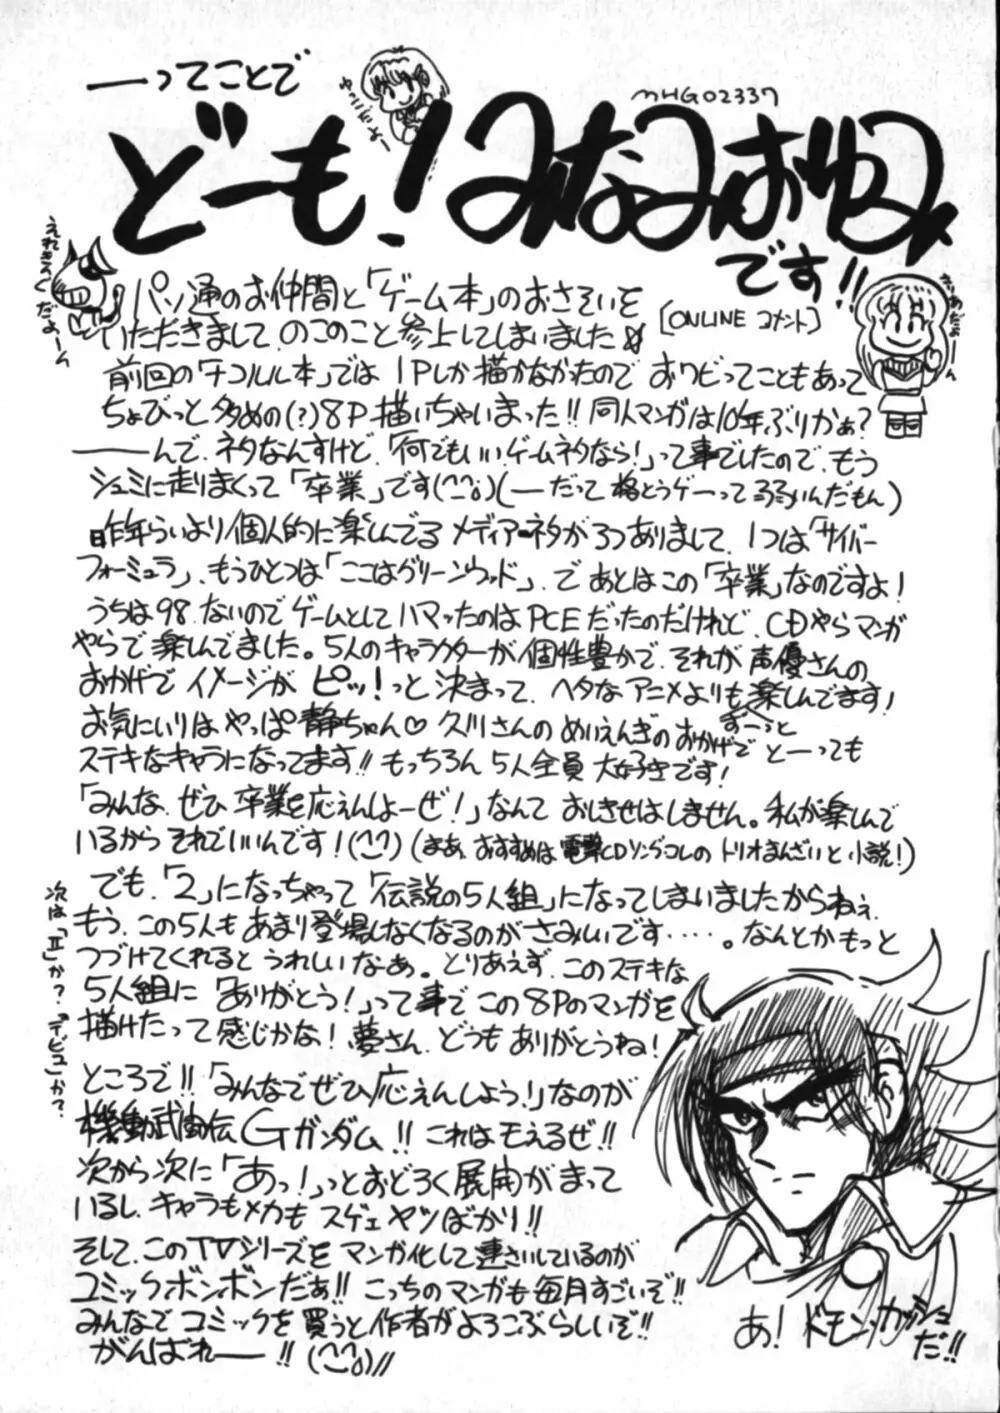 ――ってことで
ゆっこだよー
MHG02337
どーも!みなみおゆみ
です!!
えれきんぐだよーん
パソ通のお仲間と「ゲーム本」のおさそいを
いただきまして、のこのこと参上してしまいました
[ONLINE コメント]
前回の「ナコルル本」では1Pしか描かなかったのでおワビってこともあって
ちょびっと多めの(?)8P描いちゃいまった!!同人マンガは10年ぶりかぁ?
――んで、ネタなんすけど、「何でもいい、ゲームネタなら!」って事でしたので、もう
シュミに走りまくって「卒業」です(^^;)(―だって格とうゲーって弱いんだもん)
昨年らいより個人的に楽しんでるメディアネタが3つありまして、1つは「サイバー
フォーミュラ」、もうひとつは「ここはグリーンウッド」、であとはこの「卒業」なのですよ!
うちは98、ないのでゲームとしてハマったのはPCEだったのだけれど、CDやらマンガ
やらで楽しんでました。5人のキャラクターが個性豊かで、それが声優さんの
おかげでイメージがピッ!っと決まって、ヘタなアニメよりもずーっと楽しんでます!
お気にいりはやっぱ静ちゃん♡久川さんのめいえんぎのおかげでとーっても
ステキなキャラになってます!!もっちろん5人全員大好きです!
「みんな、ぜひ卒業を応えんしよーぜ!」なんておしきせはしません。私が楽しんで
いるからそれでいいんです!(^^)(まあ、おすすめは電撃CDソングコレのトリオまんざいと小説!)
でも、「2」になっちゃって「伝説の5人組」になってしまいましたからねぇ、
もう、この5人もあまり登場しなくなるのがさみしいです・・・・。なんとかもっと
つづけてくれるとうれしいなあ。とりあえず、このステキな
5人組に「ありがとう!」って事でこの8Pのマンガを
描けたって感じかな!夢さん、どうもありがとうね!
次は「Ⅱ」か?「デビュ」か?
ところで!!「みんなでぜひ応えんしよう!」なのが
機動武闘伝Gガンダム!!これはモえるぜ!!
次から次に「あっ!」っとおどろく展開がまって
いるし、キャラもメカもスゲェヤツばかり!!
そして、このTVシリーズをマンガ化して連さいしているのが
コミックボンボンだぁ!!こっちのマンガも毎月すごいぞ!!
みんなでコミックを買うと作者がよろこぶらしいぞ!!
がんばれ――!!(^^;)//
あ!ドモン・カッシュ
だ!!